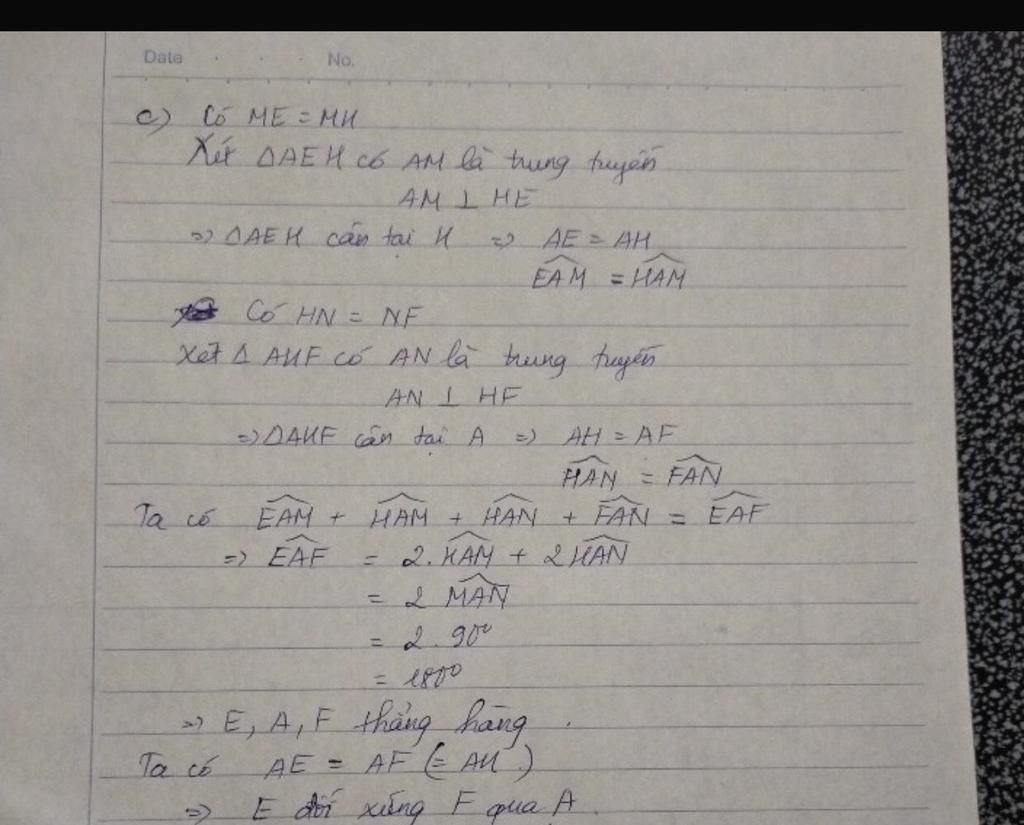 Date . . . No.
c) Có ME = MH
Xét ΔAEH có AM là trung tuyến
AM ⊥ HE
=> ΔAEH cân tại H => AE = AH
\widehat{EAM} = \widehat{HAM}
Có HN = NF
Xét Δ AHF có AN là trung tuyến
AN ⊥ HF
=> ΔAHF cân tại A => AH = AF
\widehat{HAN} = \widehat{FAN}
Ta có \widehat{EAM} + \widehat{HAM} + \widehat{HAN} + \widehat{FAN} = \widehat{EAF}
=> \widehat{EAF} = 2.\widehat{HAM} + 2\widehat{HAN}
= 2 \widehat{MAN}
= 2 . 90°
= 180°
=> E, A, F thẳng hàng .
Ta có AE = AF (= AH)
=> E đối xứng F qua A.